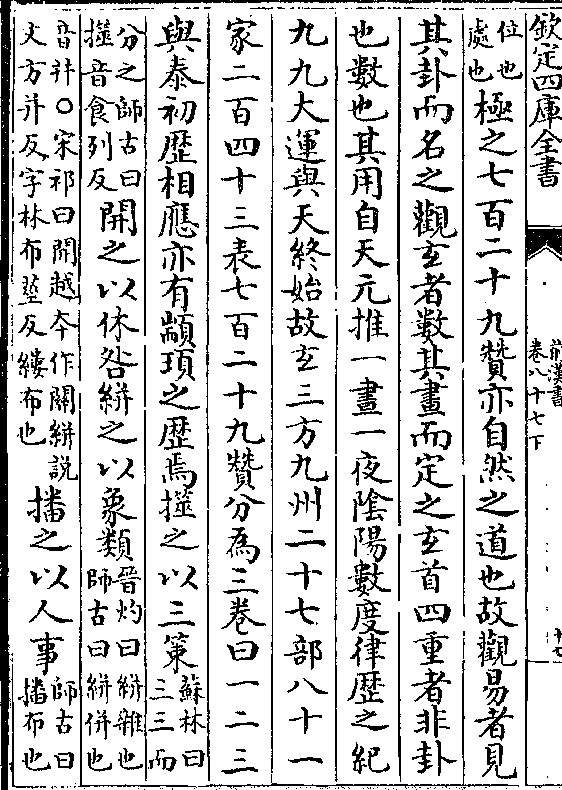 欽定四庫全書
前漢書
卷八十七下
十七
位也
處也
極之七百二十九贊亦自然之道也故觀易者見
其卦而名之觀玄者數其畫而定之玄首四重者非卦
也數也其用自天元推一晝一夜陰陽數度律歷之紀
九九大運與天終始故玄三方九州二十七部八十一
家二百四十三表七百二十九贊分為三卷曰一二三
與泰初歷相應亦有顓頊之歷焉㩻之以三策
蘇林曰
三三而
分之師古曰
㩻音食列反
開之以休咎絣之以象類
晉灼曰絣雜也
師古曰絣併也
音幷○宋祁曰開越本作關絣説
文方幷反字林布莖反縷布也
播之以人事
師古曰
播布也